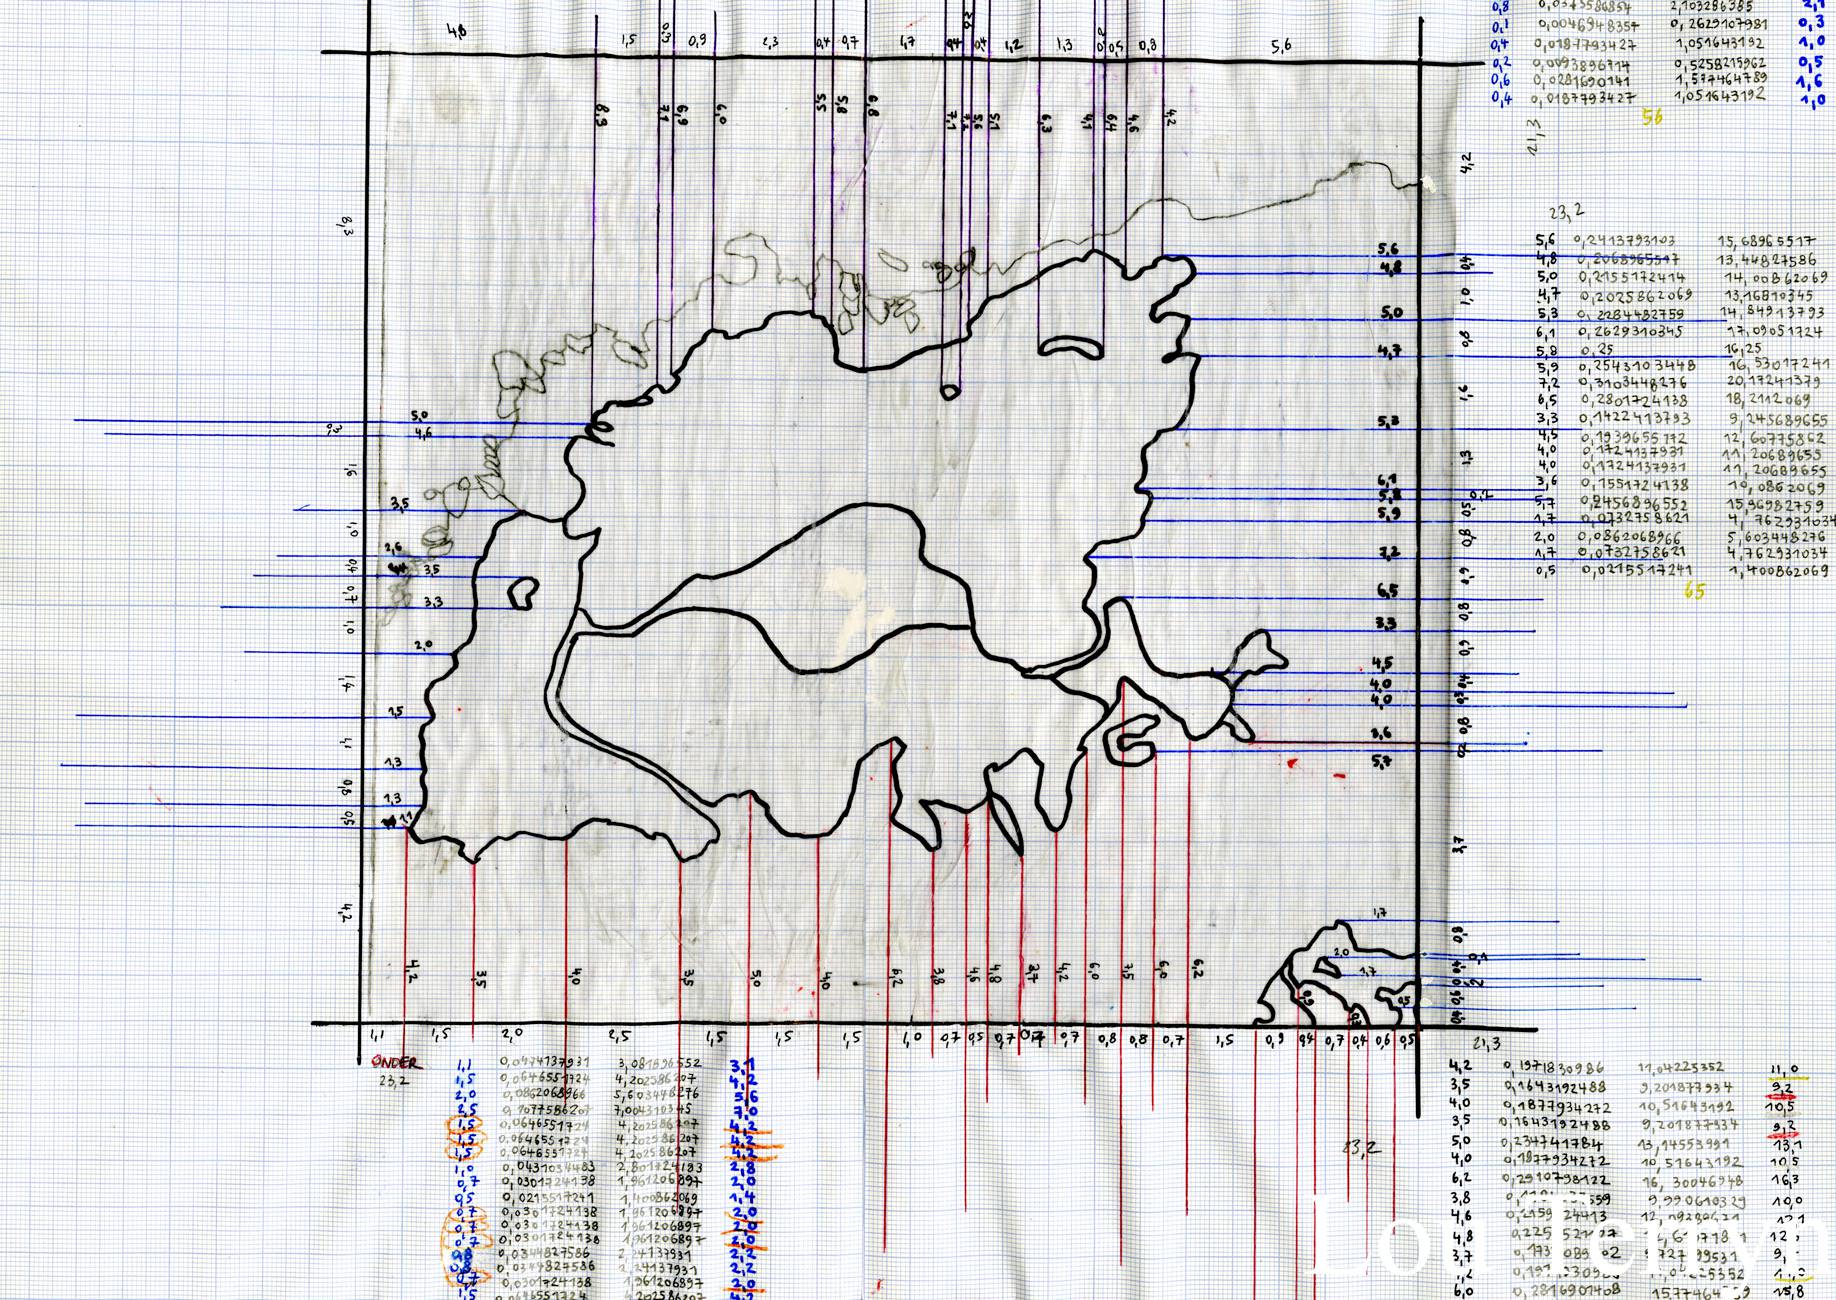 4,8 1,5 0,3 0,9 2,3 0,4 0,7 1,7 0,4 1,2 1,3 0,5 0,8 5,6
8,3 7,1 6,9 6,0 5,5 5,8 6,8 7,1 5,6 5,1 6,3 4,1 6,4 4,6 4,2
0,8 0,0375586854 2,103286385
0,1 0,0046948357 0,2629107981 0,3
0,4 0,0187793427 1,051643192 1,0
0,2 0,0093896714 0,5258215962 0,5
0,6 0,0281690141 1,577464789 1,6
0,4 0,0187793427 1,051643192 1,0
56
21,3
4,2
8,3
23,2
5,6 0,2413793103 15,68965517
4,8 0,2068965517 13,44827586
5,0 0,2155172414 14,00862069
4,7 0,2025862069 13,16810345
5,3 0,2284482759 14,84913793
6,1 0,2629310345 17,09051724
5,8 0,25 16,25
5,9 0,2543103448 16,53017241
7,2 0,3103448276 20,17241379
6,5 0,2801724138 18,2112069
3,3 0,1422413793 9,245689655
4,5 0,1939655172 12,60775862
4,0 0,1724137931 11,20689655
4,0 0,1724137931 11,20689655
3,6 0,1551724138 10,0862069
5,7 0,2456896552 15,96982759
1,7 0,0732758621 4,762931034
2,0 0,0862068966 5,603448276
1,7 0,0732758621 4,762931034
0,5 0,0215517241 1,400862069
65
5,6
4,8
5,0
4,7
5,3
6,1
5,8
5,9
7,2
6,5
3,3
4,5
4,0
4,0
3,6
5,7
0,4
1,0
0,8
1,6
1,3
0,2
0,5
0,8
0,9
0,8
0,9
0,8
3,7
5,0
4,6
3,5
2,6
3,5
3,3
2,0
1,5
1,3
1,3
1,1
1,6
1,0
0,4
0,7
1,0
1,4
1,1
0,8
0,5
4,2
1,7
2,0
1,7
0,5
0,9
0,3
0,8
4,2 3,5 4,0 3,5 5,0 4,0 6,2 3,8 4,6 4,8 3,7 4,2 6,0 7,5 6,0 6,2
1,1 1,5 2,0 2,5 1,5 1,5 1,5 1,0 0,7 0,7 0,8 0,8 0,7 1,5 0,9 0,4 0,7 0,4 0,6 0,5
ONDER
23,2
1,1 0,0474137931 3,081896552 3,1
1,5 0,0646551724 4,202586207 4,2
2,0 0,0862068966 5,603448276 5,6
2,5 0,1077586207 7,004310345 7,0
1,5 0,0646551724 4,202586207 4,2
1,5 0,0646551724 4,202586207 4,2
1,5 0,0646551724 4,202586207 4,2
1,0 0,0431034483 2,801724183 2,8
0,7 0,0301724138 1,961206897 2,0
0,5 0,0215517241 1,400862069 1,4
0,7 0,0301724138 1,961206897 2,0
0,7 0,0301724138 1,961206897 2,0
0,7 0,0301724138 1,961206897 2,0
0,8 0,0344827586 2,24137931 2,2
0,8 0,0344827586 2,24137931 2,2
0,7 0,0301724138 1,961206897 2,0
1,5 0,0646551724 4,202586207 4,2
21,3
4,2 0,1971830986 11,04225352 11,0
3,5 0,1643192488 9,201877934 9,2
4,0 0,1877934272 10,51643192 10,5
3,5 0,1643192488 9,201877934 9,2
5,0 0,234741784 13,14553991 13,1
4,0 0,1877934272 10,51643192 10,5
6,2 0,2910798122 16,30046948 16,3
3,8 9,990610329 10,0
4,6
4,8
3,7
6,0 0,2816901408 15,8
23,2